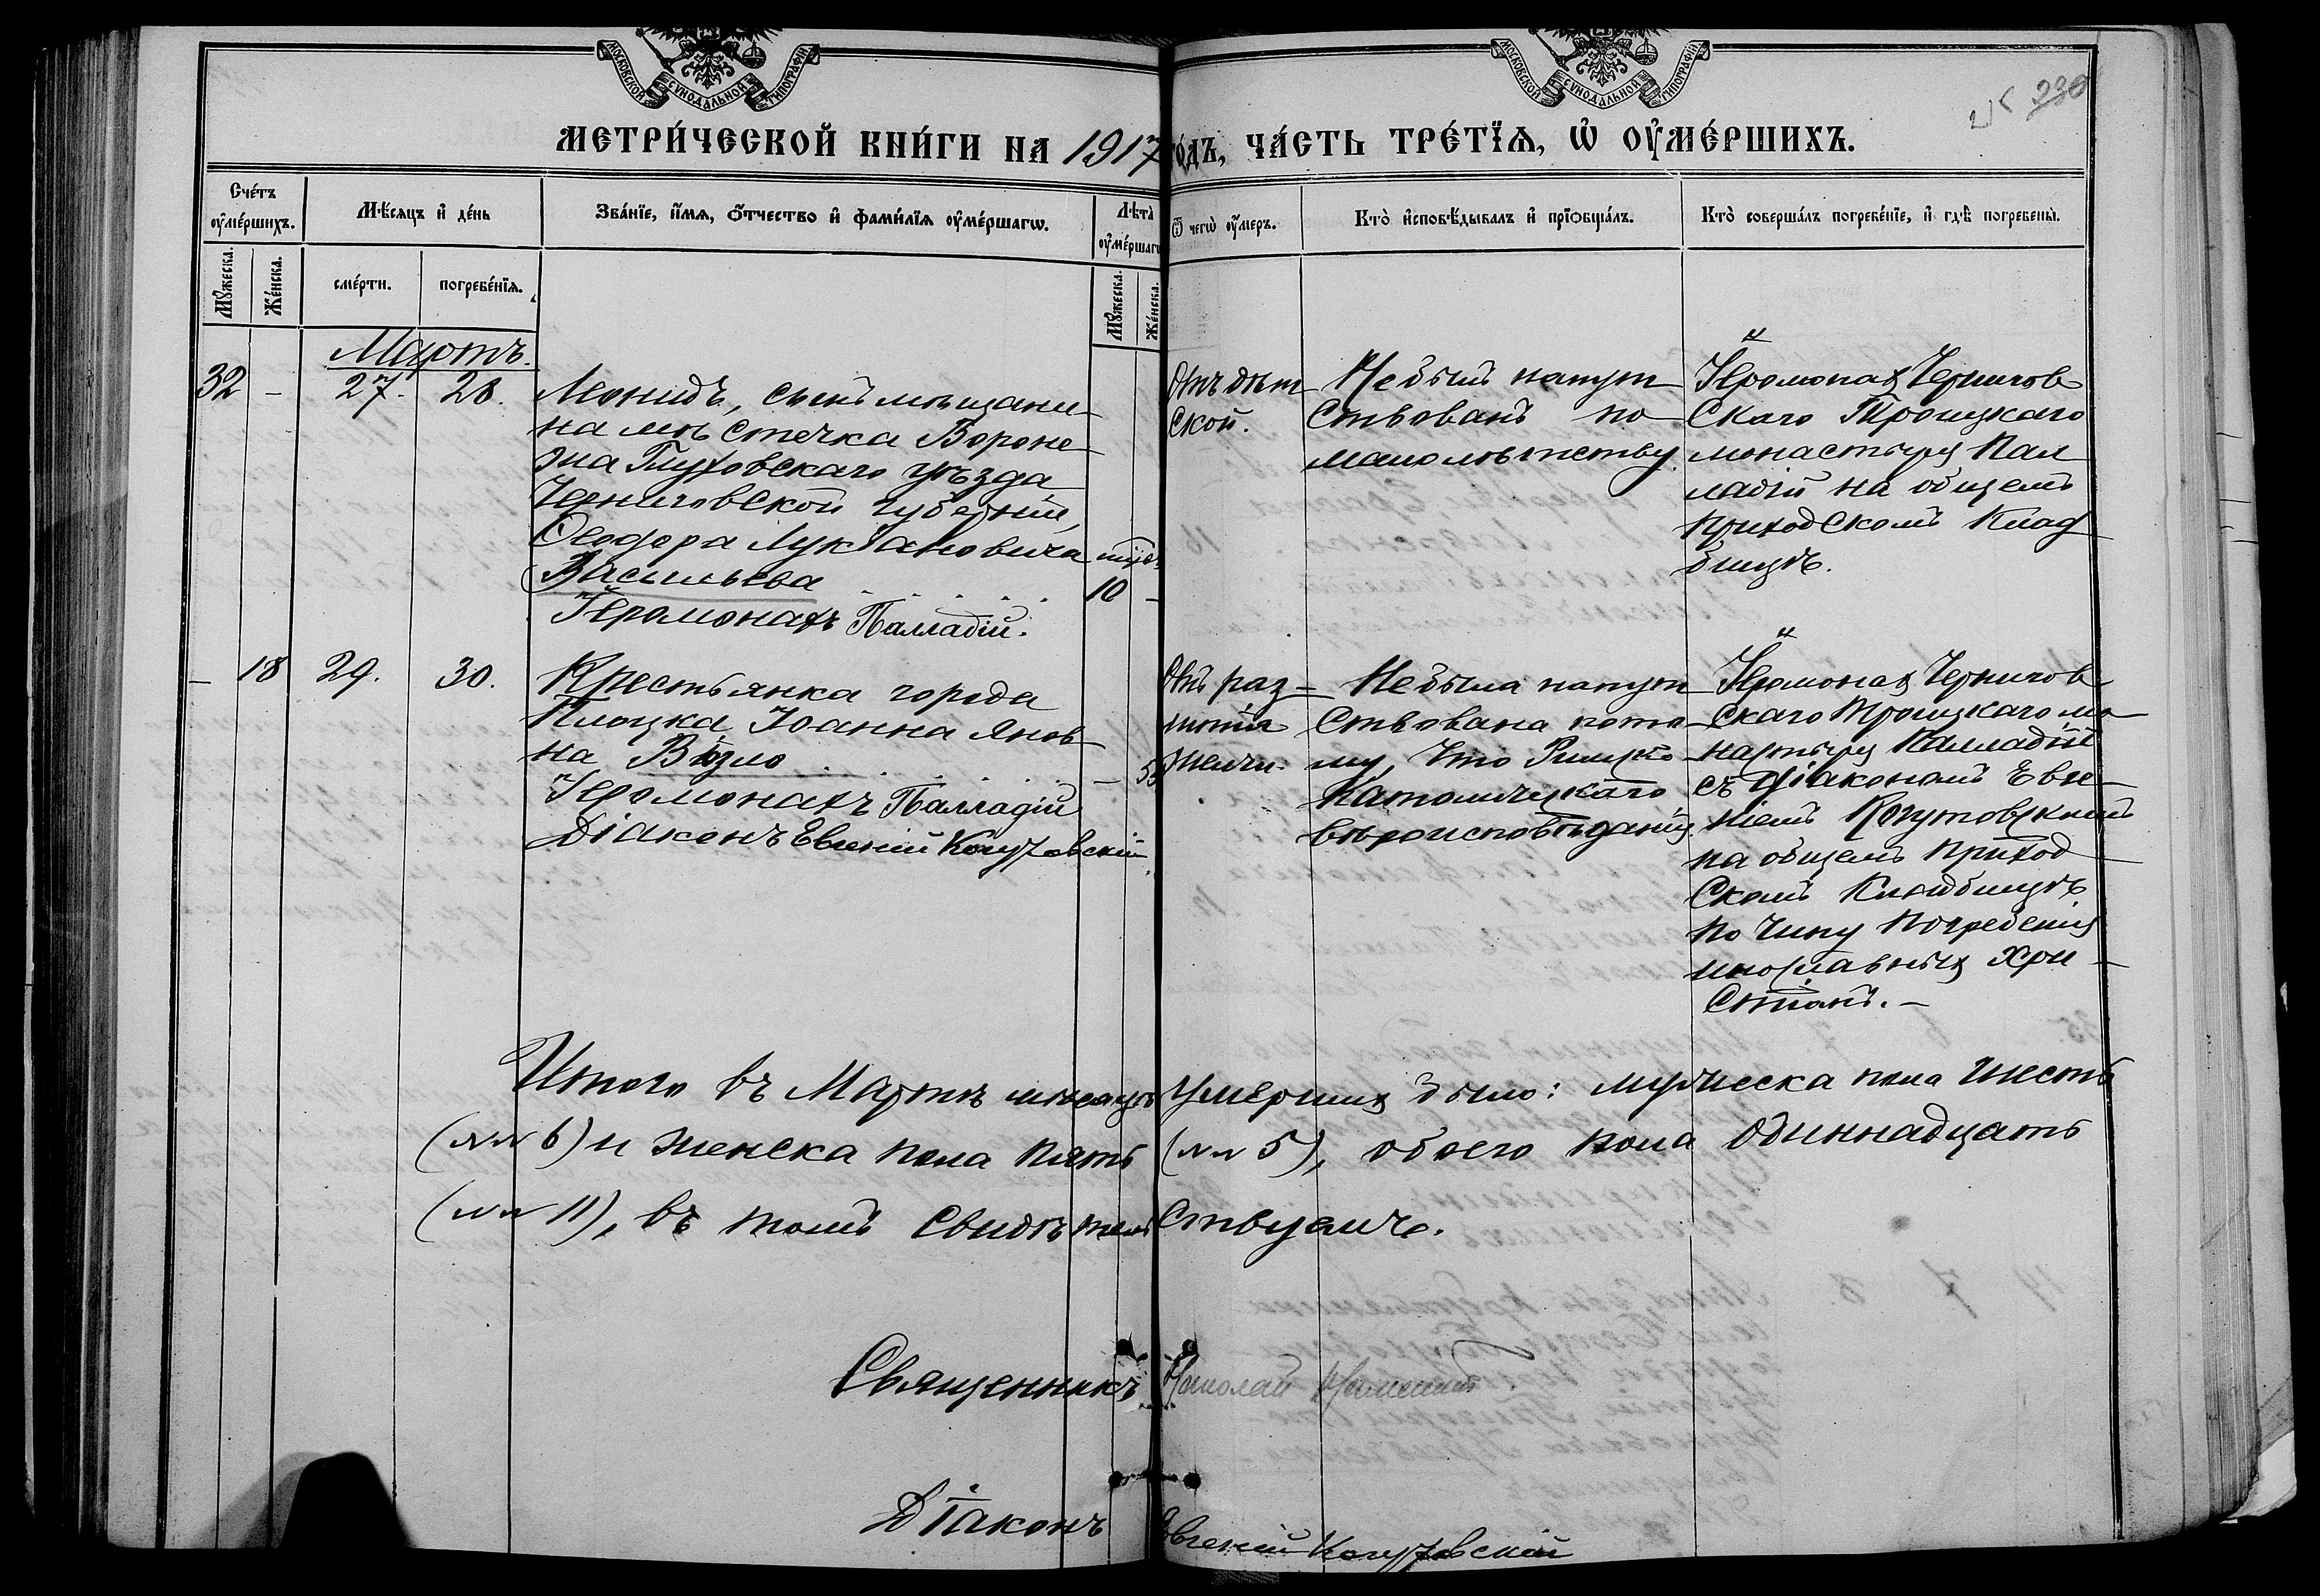 МОСКОВСКОЙ СѴНОДАЛЬНОЙ ТИПОГРАФІИ
МОСКОВСКОЙ СѴНОДАЛЬНОЙ ТИПОГРАФІИ
230
МЕТРИ́ЧЕСКОЙ КНИ́ГИ НА 1917 го́дъ, ЧА́СТЬ ТРЕ́ТЇѦ, Ѡ҆ ОУ҆МЕ́РШИХЪ.
Сче́тъ оу҆ме́ршихъ.
Мѣ́сяцъ и҆ де́нь
Зва́нїе, и҆́мя, ѻ҆́тчество и҆ фами́лїя оу҆ме́ршагѡ.
Лѣ́та оу҆ме́ршагѡ
Ѿ чегѡ̀ оу҆́меръ.
Кто̀ и҆сповѣ́дывалъ и҆ прїѻбща́лъ.
Кто̀ соверша́лъ погребе́нїе, и҆ гдѣ̀ погребены̀.
Мꙋ́жеска.
Же́нска.
сме́рти.
погребе́нїя.
Мꙋ́жеска.
Же́нска.
Мартъ.
32 – 27. 28.
Леонидъ, сынъ мѣщани-
на мѣстечка Вороне-
жа Глуховскаго уѣзда
Черниговской губерніи,
Ѳеодора Лукіановича
Васильева . . . . .
10 –
Іеромонахъ Палладій.
Отъ дѣт
ской.
Не былъ напут
ствованъ по
малолѣтству.
Іеромонах Чернигов
скаго Троицкаго
монастыря Пал
ладій на общемъ
приходскомъ клад
бищѣ.
– 18 29. 30.
Крестьянка города
Плоцка Іоанна Янов-
на Вѣзло . . . . .
Іеромонахъ Палладій
Діаконъ Евгеній
Отъ раз-
литія
желчи.
Не была напут
ствована пото-
му, что Римско-
Католическаго
вѣроисповѣданія.
Іеромонах Чернигов
скаго Троицкаго мо-
настыря Палладій
съ діакономъ Евге-
ніемъ
на общемъ приход-
скомъ кладбищѣ
по чину погребенія
инославных хри-
стіанъ. –
Итого въ Мартѣ мѣсяцѣ умерших было: мужеска пола шесть
(№№ 6) и женска пола пять (№№ 5), обоего пола одиннадцать
(№№ 11), въ томъ свидѣтельствуемъ.
Священникъ Николай
Діаконъ Евгеній